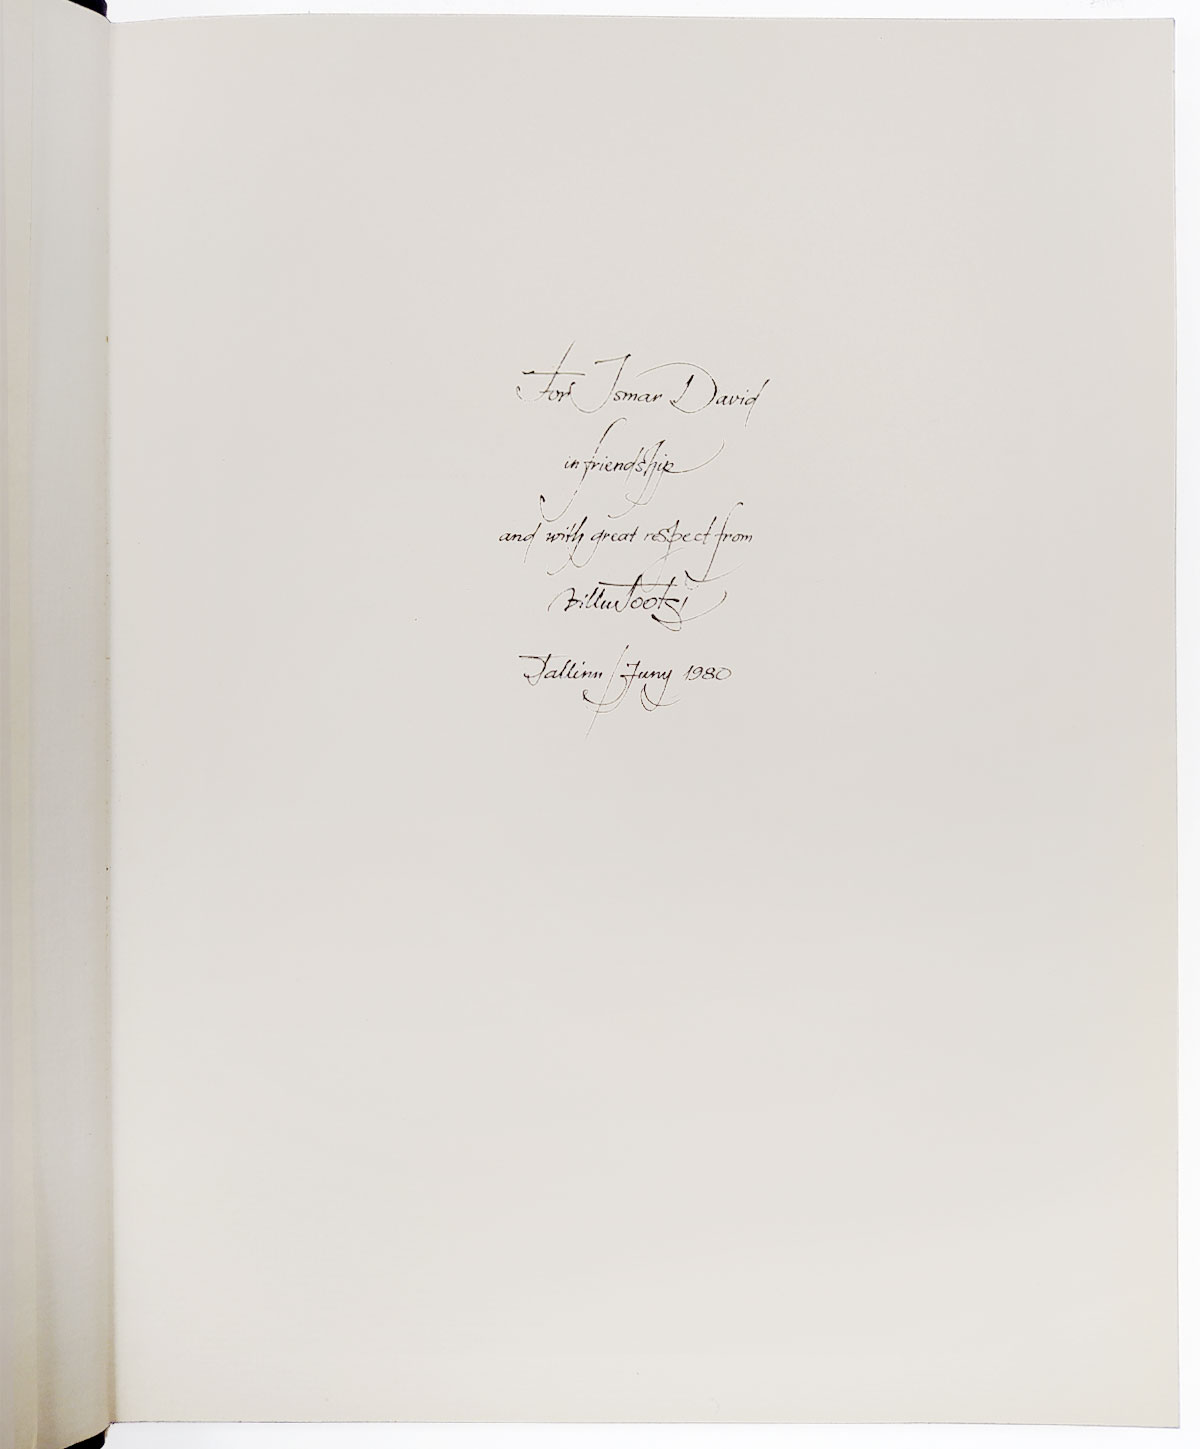 For Ismar David
in friendship
and with great respect from
Villu Tootsi
Tallinn / Juny 1980